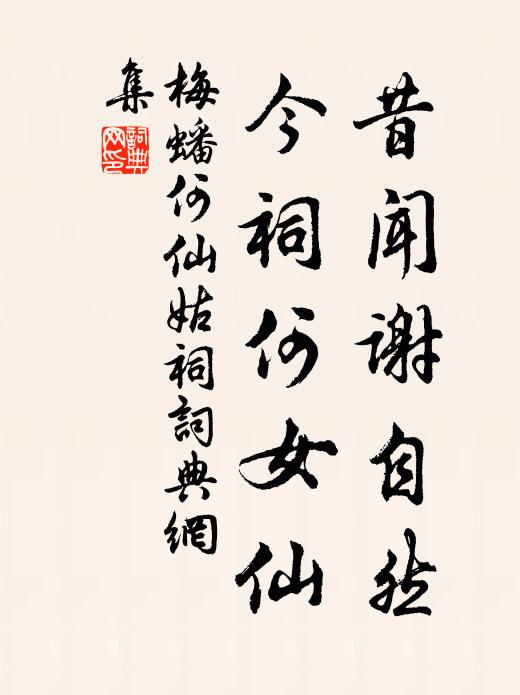 昔闻谢自然
今祠何女仙
梅蟠何仙姑祠詞典網
集
詞典网印